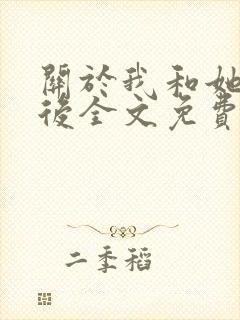 關於我和她
後全文免費
二季稻